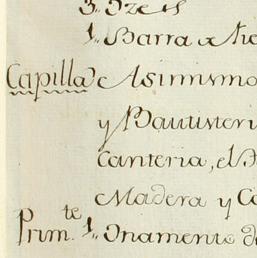 1.. Barra
Capilla Asimismo
y Bautisteri
Canteria, el
Madera y Ca
Prim.te 1.. Ornamento de